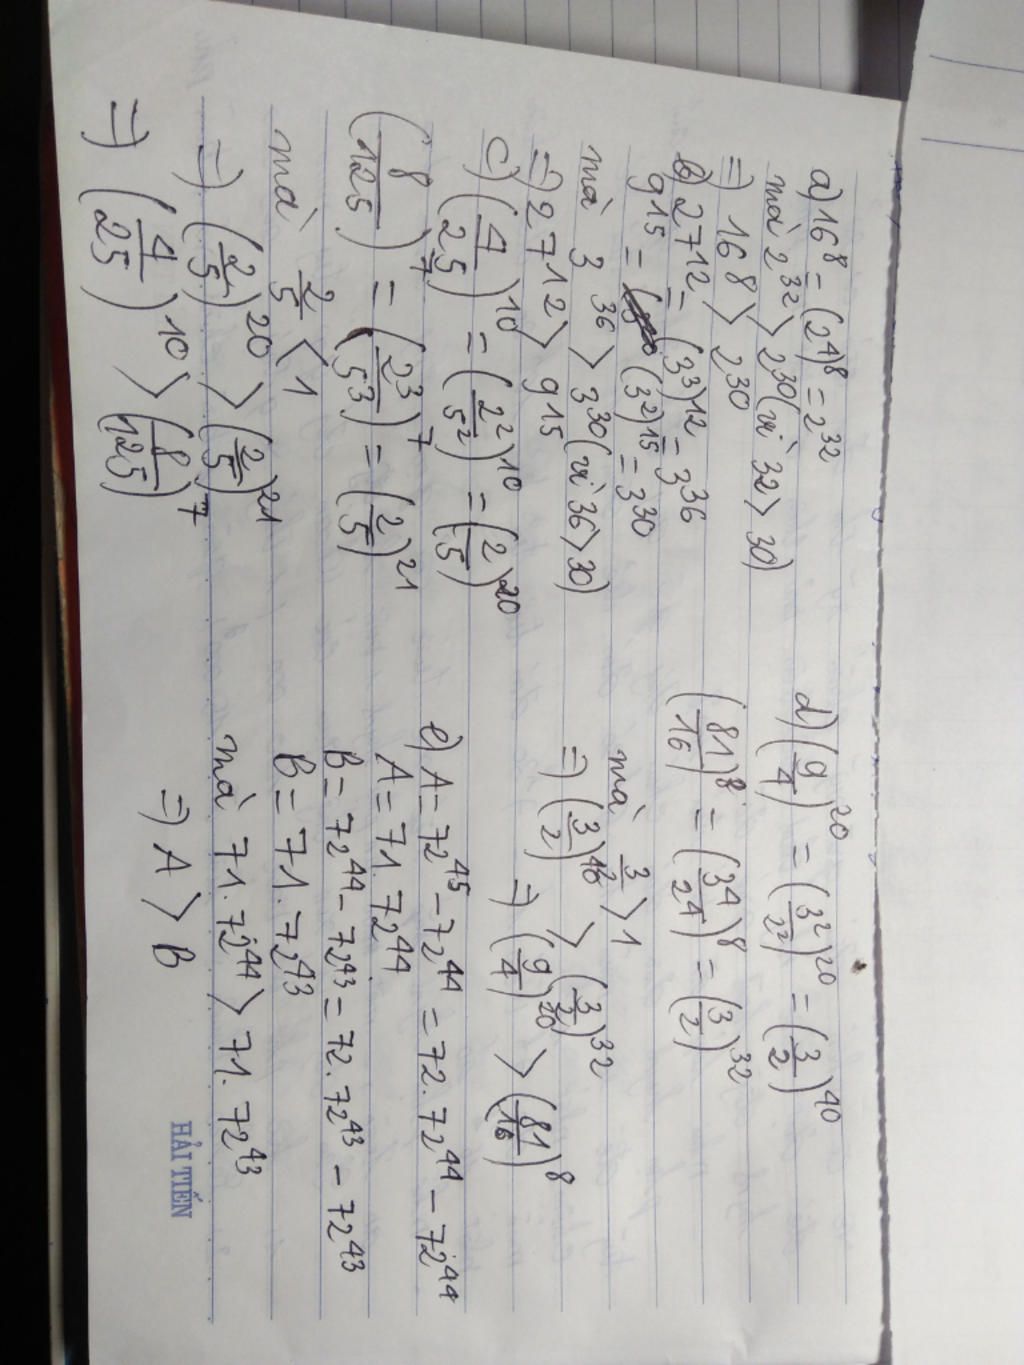 a) 16⁸ = (2⁴)⁸ = 2³²
mà 2³² > 2³⁰ (vì 32 > 30)
=) 16⁸ > 2³⁰
b) 27¹² = (3³)¹² = 3³⁶
9¹⁵ = (3²)¹⁵ = 3³⁰
mà 3³⁶ > 3³⁰ (vì 36 > 30)
=) 27¹² > 9¹⁵
c) (4/25)¹⁰ = (2²/5²)¹⁰ = (2/5)²⁰
(8/125)⁷ = (2³/5³)⁷ = (2/5)²¹
mà 2/5 < 1
=) (2/5)²⁰ > (2/5)²¹
=) (4/25)¹⁰ > (8/125)⁷
d) (9/4)²⁰ = (3²/2²)²⁰ = (3/2)⁴⁰
(81/16)⁸ = (3⁴/2⁴)⁸ = (3/2)³²
mà 3/2 > 1
=) (3/2)⁴⁰ > (3/2)³²
=) (9/4)²⁰ > (81/16)⁸
e) A = 72⁴⁵ - 72⁴⁴ = 72.72⁴⁴ - 72⁴⁴
A = 71.72⁴⁴
B = 72⁴⁴ - 72⁴³ = 72.72⁴³ - 72⁴³
B = 71.72⁴³
mà 71.72⁴⁴ > 71.72⁴³
=) A > B
HẢI TIẾN